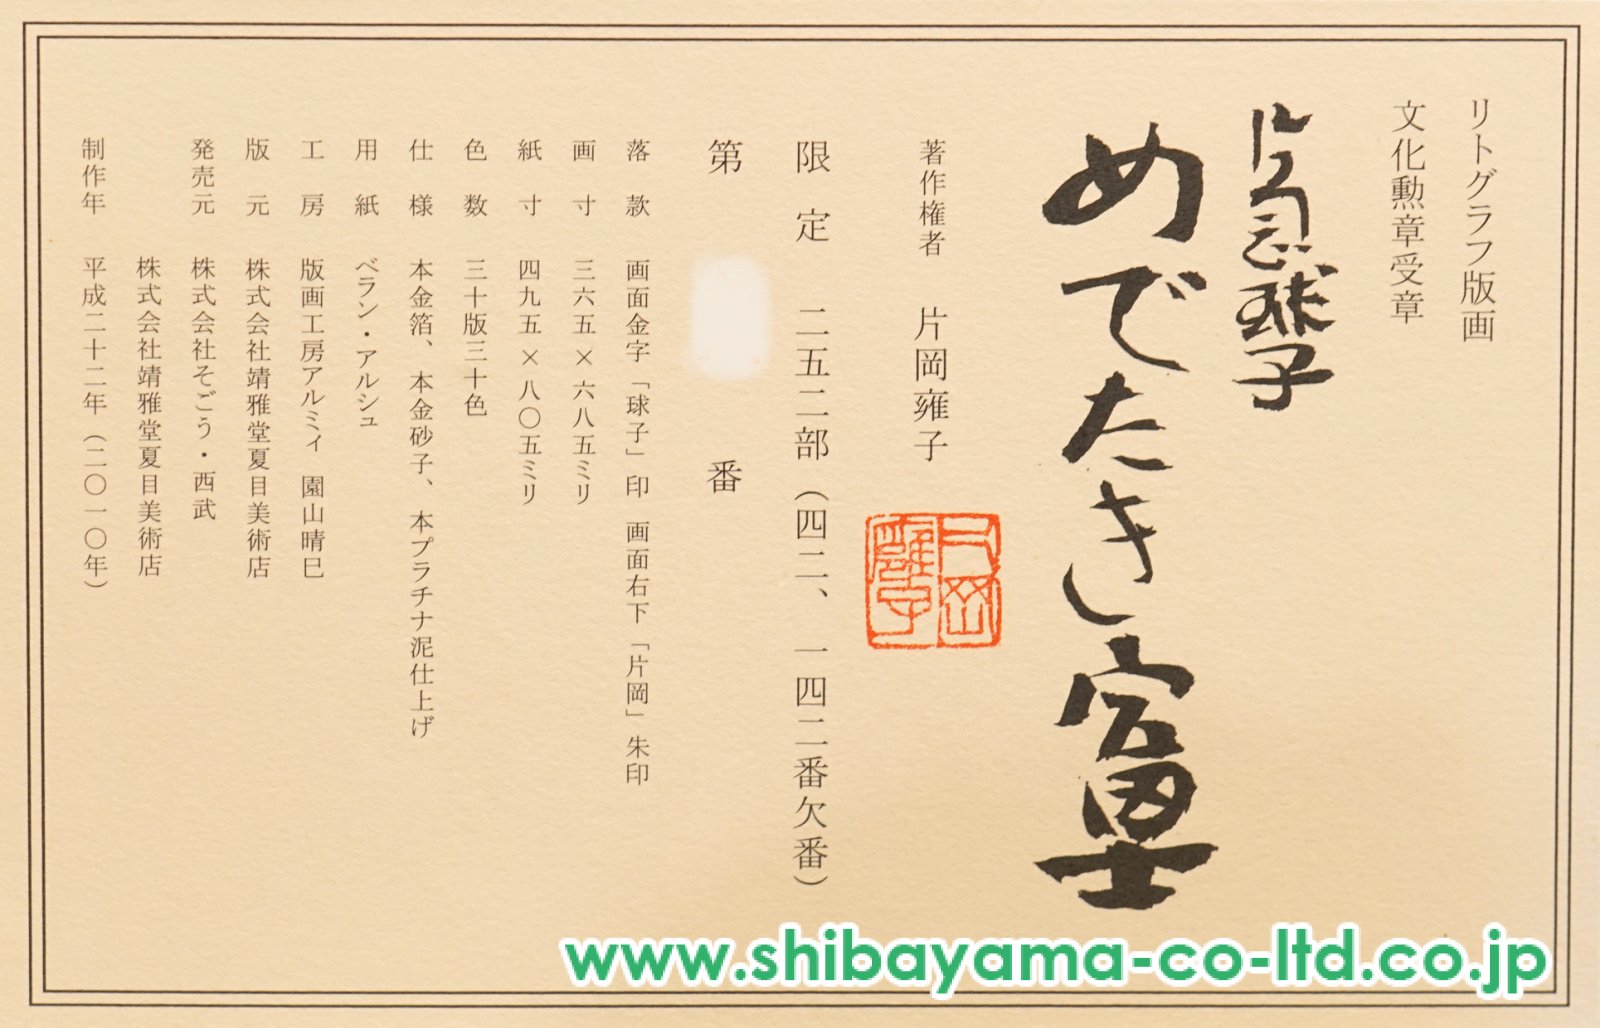 リトグラフ版画
文化勲章受章
片岡球子
めでたき富士
著作権者 片岡雍子
片岡雍子
限定 二五二部（四二、一四二番欠番）
第 番
落款 画面金字「球子」印 画面右下「片岡」朱印
画寸 三六五×六八五ミリ
紙寸 四九五×八〇五ミリ
色数 三十版三十色
仕様 本金箔、本金砂子、本プラチナ泥仕上げ
用紙 ベラン・アルシュ
工房 版画工房アルミィ 園山晴巳
版元 株式会社靖雅堂夏目美術店
発売元 株式会社そごう・西武
株式会社靖雅堂夏目美術店
制作年 平成二十二年（二〇一〇年）
www.shibayama-co-ltd.co.jp